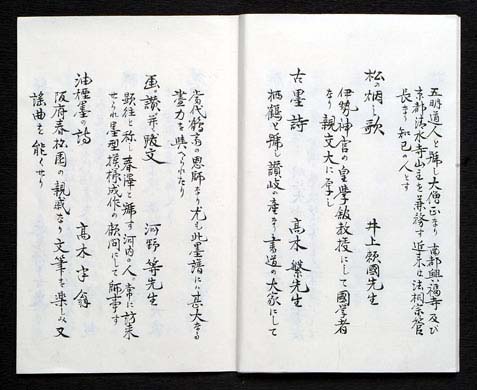 五明道人と號し大僧正なり 京都興福寺及び
京都清水寺山主を兼務す近来は法相宗管
長なり知己の人とす
松の烟し歌 井上頼國先生
伊勢神宮の皇學館教授にして國學者
なり親文大に学し
古墨詩 高木繁先生
栖鶴と號し讃岐の産なり書道の大家にして
當代鶴斎の恩師なり尤も此墨譜には甚大なる
盡力を與へられたり
画讃并跋文 河野等先生
歸往と称し春澤と號す河内の人常に訪来
せられ墨型模様成作の顧問にして師事す
油煙墨の詩 高木半
阪府春松園の親戚なり文筆を楽しみ又
謡曲を能くせり